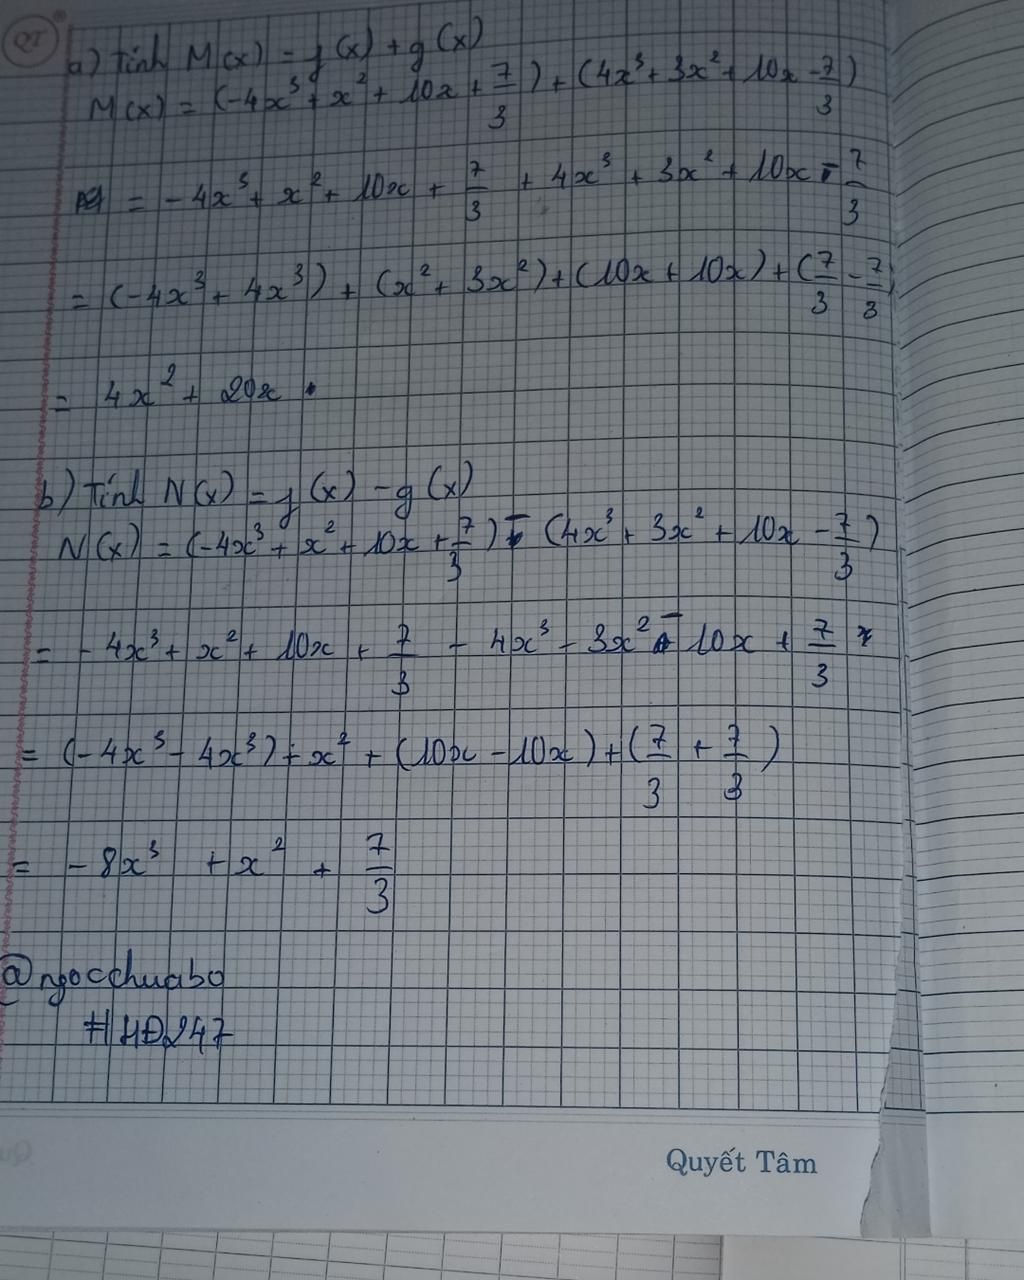 QT
a) Tính M(x) = f(x) + g(x)
M(x) = (-4x³ + x² + 10x + 7/3) + (4x³ + 3x² + 10x - 7/3)
= -4x³ + x² + 10x + 7/3 + 4x³ + 3x² + 10x - 7/3
= (-4x³ + 4x³) + (x² + 3x²) + (10x + 10x) + (7/3 - 7/3)
= 4x² + 20x .
b) Tính N(x) = f(x) - g(x)
N(x) = (-4x³ + x² + 10x + 7/3) - (4x³ + 3x² + 10x - 7/3)
= -4x³ + x² + 10x + 7/3 - 4x³ - 3x² - 10x + 7/3
= (-4x³ - 4x³) + x² + (10x - 10x) + (7/3 + 7/3)
= -8x³ + x² + 7/3
@ngocchuabo
#HĐ247
Quyết Tâm